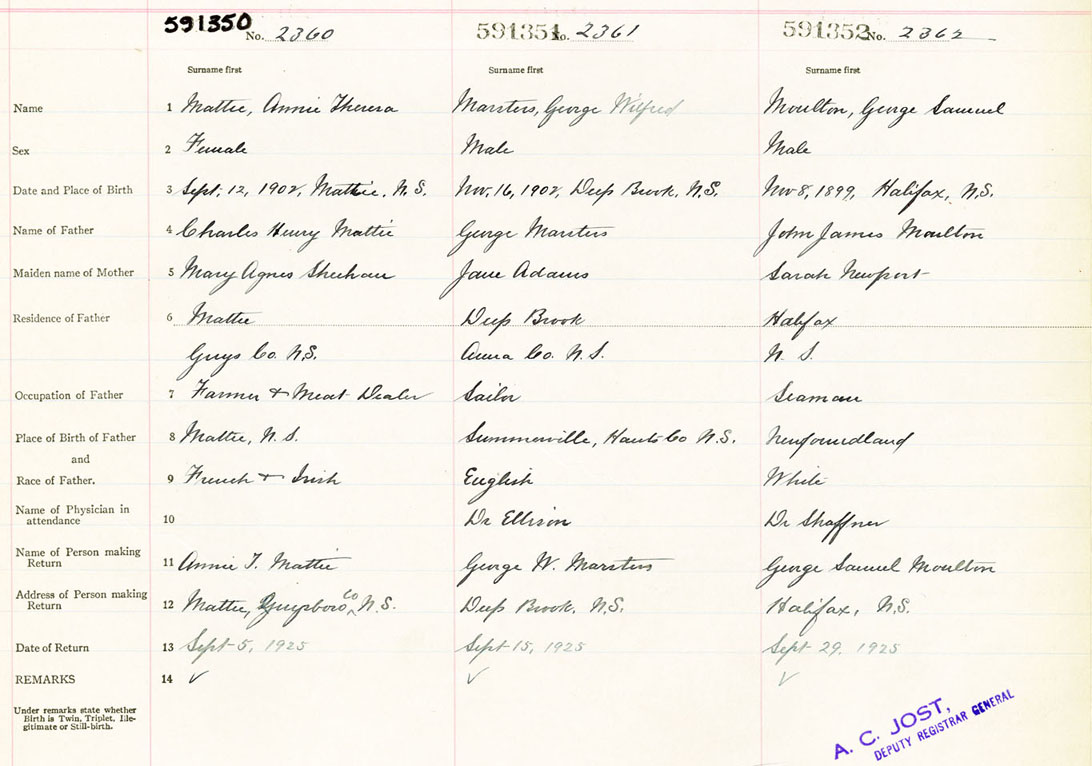 591350 No. 2360 591351 No. 2361 591352 No. 2362
Surname first Surname first Surname first
Name 1 Mattie, Annie Theresa Marsters, George Wilfred Moulton, George Samuel
Sex 2 Female Male Male
Date and Place of Birth 3 Sept. 12, 1902, Mattie, N.S. Nov. 16, 1902, Deep Brook, N.S. Nov 8, 1899, Halifax, N.S.
Name of Father 4 Charles Henry Mattie George Marsters John James Moulton
Maiden name of Mother 5 Mary Agnes Sheehan Jane Adams Sarah Newport
Residence of Father 6 Mattie Deep Brook Halifax
Guys Co. N.S. Anna Co. N.S. N. S.
Occupation of Father 7 Farmer + Meat Dealer Sailor Seaman
Place of Birth of Father 8 Mattie, N.S. Summerville, Hants Co N.S. Newfoundland
and
Race of Father. 9 French + Irish English White
Name of Physician in
attendance 10 Dr Ellison Dr Shaffner
Name of Person making
Return 11 Annie T. Mattie George W. Marsters George Samuel Moulton
Address of Person making
Return 12 Mattie, Guysboro Co N.S. Deep Brook, N.S. Halifax, N.S.
Date of Return 13 Sept 5, 1925 Sept 15, 1925 Sept 29, 1925
REMARKS 14 ✓ ✓ ✓
Under remarks state whether
Birth is Twin, Triplet, Ille-
gitimate or Still-birth.
A. C. JOST,
DEPUTY REGISTRAR GENERAL